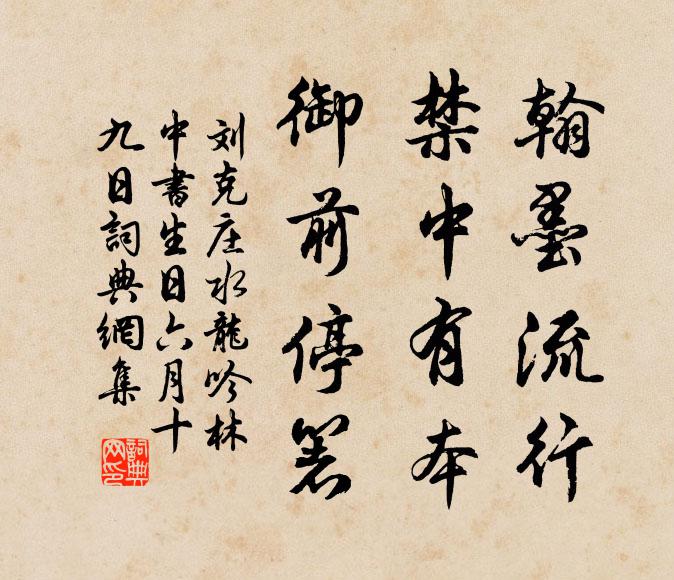 翰墨流行
禁中有本
御前停箸
刘克庄水龍吟林
中書生日六月十
九日詞典網集
詞典网印